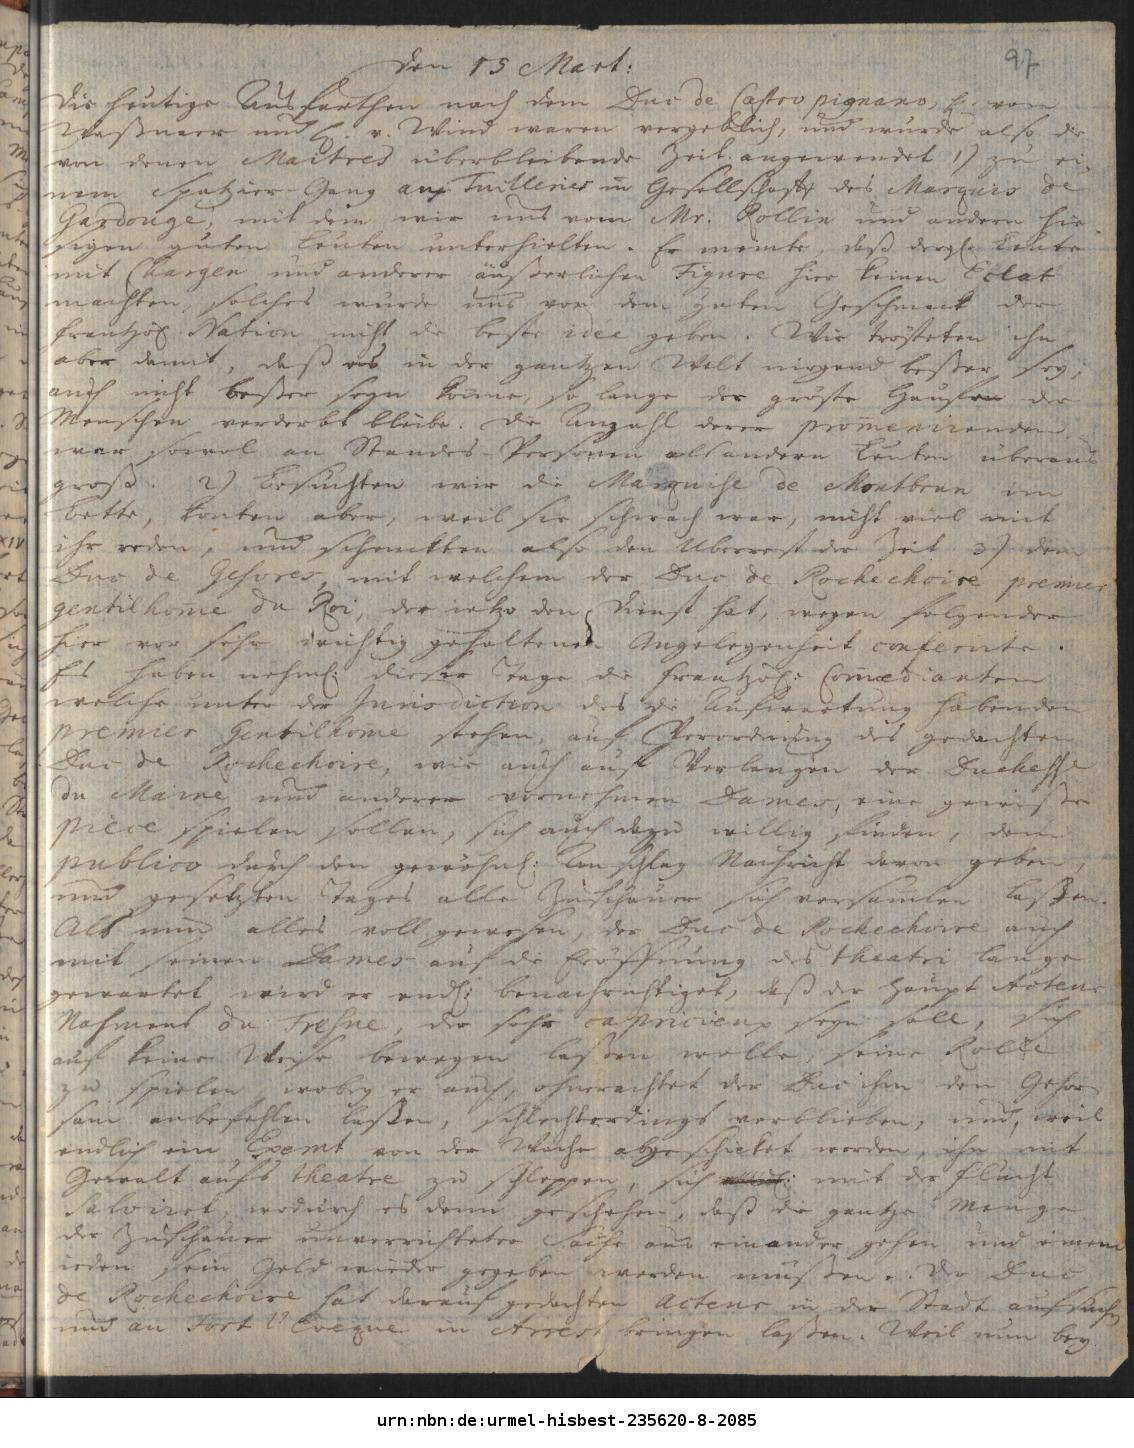 97
den 15 Mart:
Die heutige Ausfarthen nach dem Duc de Castro pignano, H. von
Waßnaer und H. v. Wind waren vergeblich, und wurde also die
von denen Maitres überbleibende Zeit angewendet 1) zu ei-
nem Spatzier-Gang aux Tuilleries in Gesellschafft des Marquis de
Gardouge, mit dem wir uns vom Mr. Rollin und andern hie-
sigen guten Leuten unterhielten. Er meinte, daß dergl. Leute
mit Chargen und anderer äußerlichen Figure hier keinen Eclat
machten, solches wurde uns von dem guten Geschmack der
frantzös. Nation nicht die beste idée geben. Wir trösteten ihn
aber damit, daß es in der gantzen Welt nirgend beßer sey,
auch nicht beßer seyn könne, so lange der gröste Hauffen der
Menschen verderbt bleibe. Die Anzahl derer promenirenden
war sowol an Standes-Personen als andern Leuten überaus
groß. 2) besuchten wir die Marquise de Montbrun im
bette, konten aber, weil sie schwach war, nicht viel mit
ihr reden, und schenkten also den Uberrest der Zeit 3) dem
Duc de Gesvres, mit welchem der Duc de Rochechoire premier
gentilhome du Roi, der ietzo den Dienst hat, wegen folgender
hier vor sehr wichtig gehaltenen Angelegenheit conferirte.
Es haben nehml: dieser Tage die frantzös: Comœdianten
welche unter der Jurisdiction des die Aufwartung habenden
premier Gentilhome stehen, auf Verordnung des gedachten
Duc de Rochechoire, wie auch auf Verlangen der Duchesse
du Maine und anderer vornehmen Dames, eine gewisse
piece spielen sollen, sich auch dazu willig finden, dem
publico durch den gewöhnl: Anschlag Nachricht davon geben,
und gesetzten Tages alle Zuschauer sich versamlen laßen.
Als nun alles voll gewesen, der Duc de Rochechoire auch
mit seinen Dames auf die Eröffnung des theatri lange
gewartet, wird er endl: benachrichtiget, daß der Haupt Acteur
Nahmens du Fresne, der sehr capricieux seyn soll, sich
auf keine Weise bewegen laßen wolle, seine Rolle
zu spielen, wobey er auch, ohnerachtet der Duc ihm den Gehor-
sam anbefehlen laßen, schlechterdings verblieben, und, weil
endlich ein Exemt von der Wache abgeschicket worden, ihn mit
Gewalt aufs theatre zu schleppen, sich mit der Flucht
salviret, wodurch es denn geschehen, daß die gantze Menge
der Zuschauer unverrichteter Sache aus einander gehen und einem
ieden sein Geld wieder gegeben werden müßen. Der Duc
de Rochechoire hat darauf gedachten Acteur in der Stadt aufsuchen
und au Fort l'Eveque in Arrest bringen laßen. Weil nun bey
urn:nbn:de:urmel-hisbest-235620-8-2085